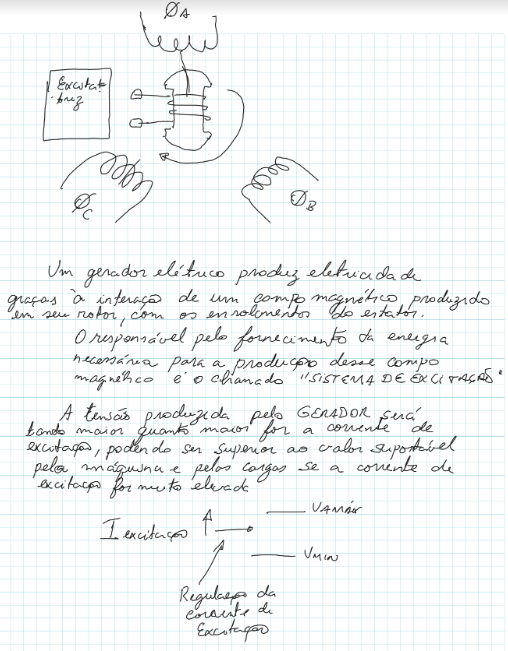 ØA
Excitat
triz
ØC
ØB
Um gerador elétrico produz eletricidade
graças à interação de um campo magnético produzido
em seu rotor, com os enrolamentos do estator.
O responsável pelo fornecimento da energia
necessária para a produção desse campo
magnético é o chamado "SISTEMA DE EXCITAÇÃO"
A tensão produzida pelo GERADOR será
tanto maior quanto maior for a corrente de
excitação, podendo ser superior ao valor suportável
pela máquina e pelas cargas se a corrente de
excitação for muito elevada
VAMÁX
I excitação
VMIN
Regulação da
corrente de
Excitação